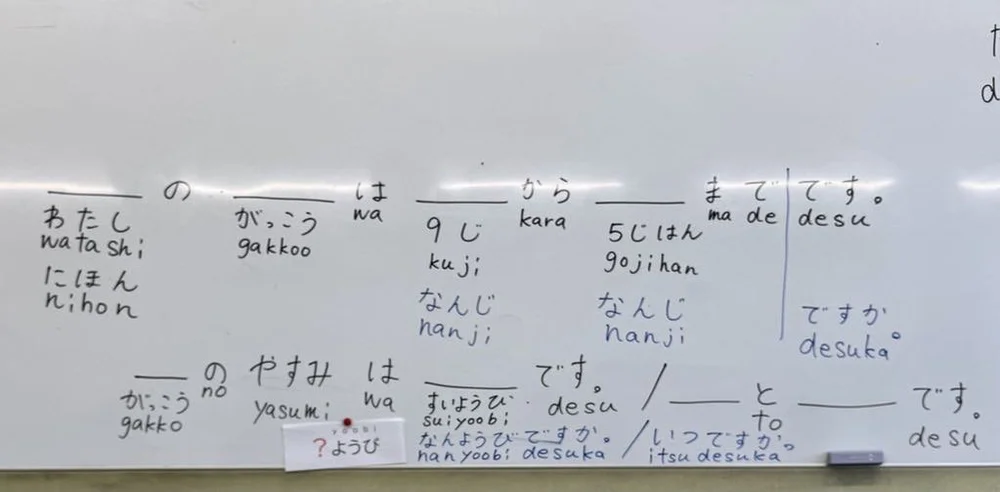 ___ の ___ は ___ から ___ まで | です。
wa kara made desu
わたし がっこう 9じ 5じはん
watashi gakkoo kuji gojihan
にほん なんじ なんじ ですか。
nihon nanji nanji desuka
___ の やすみ は ___ です。 / ___ と ___ です。
no yasumi wa desu to desu
がっこう すいようび
gakko suiyoobi
yoobi
?ようび なんようびですか。 / いつですか。
nanyoobi desuka itsu desuka